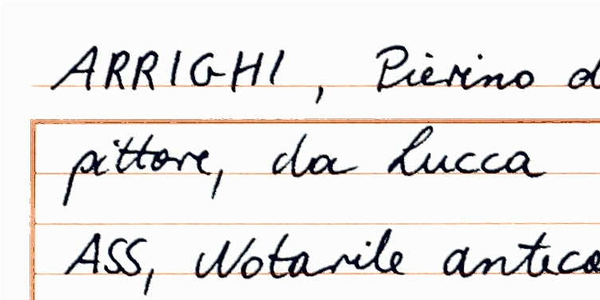 ARRIGHI, Pierino d
pittore, da Lucca
ASS, Notarile anteco